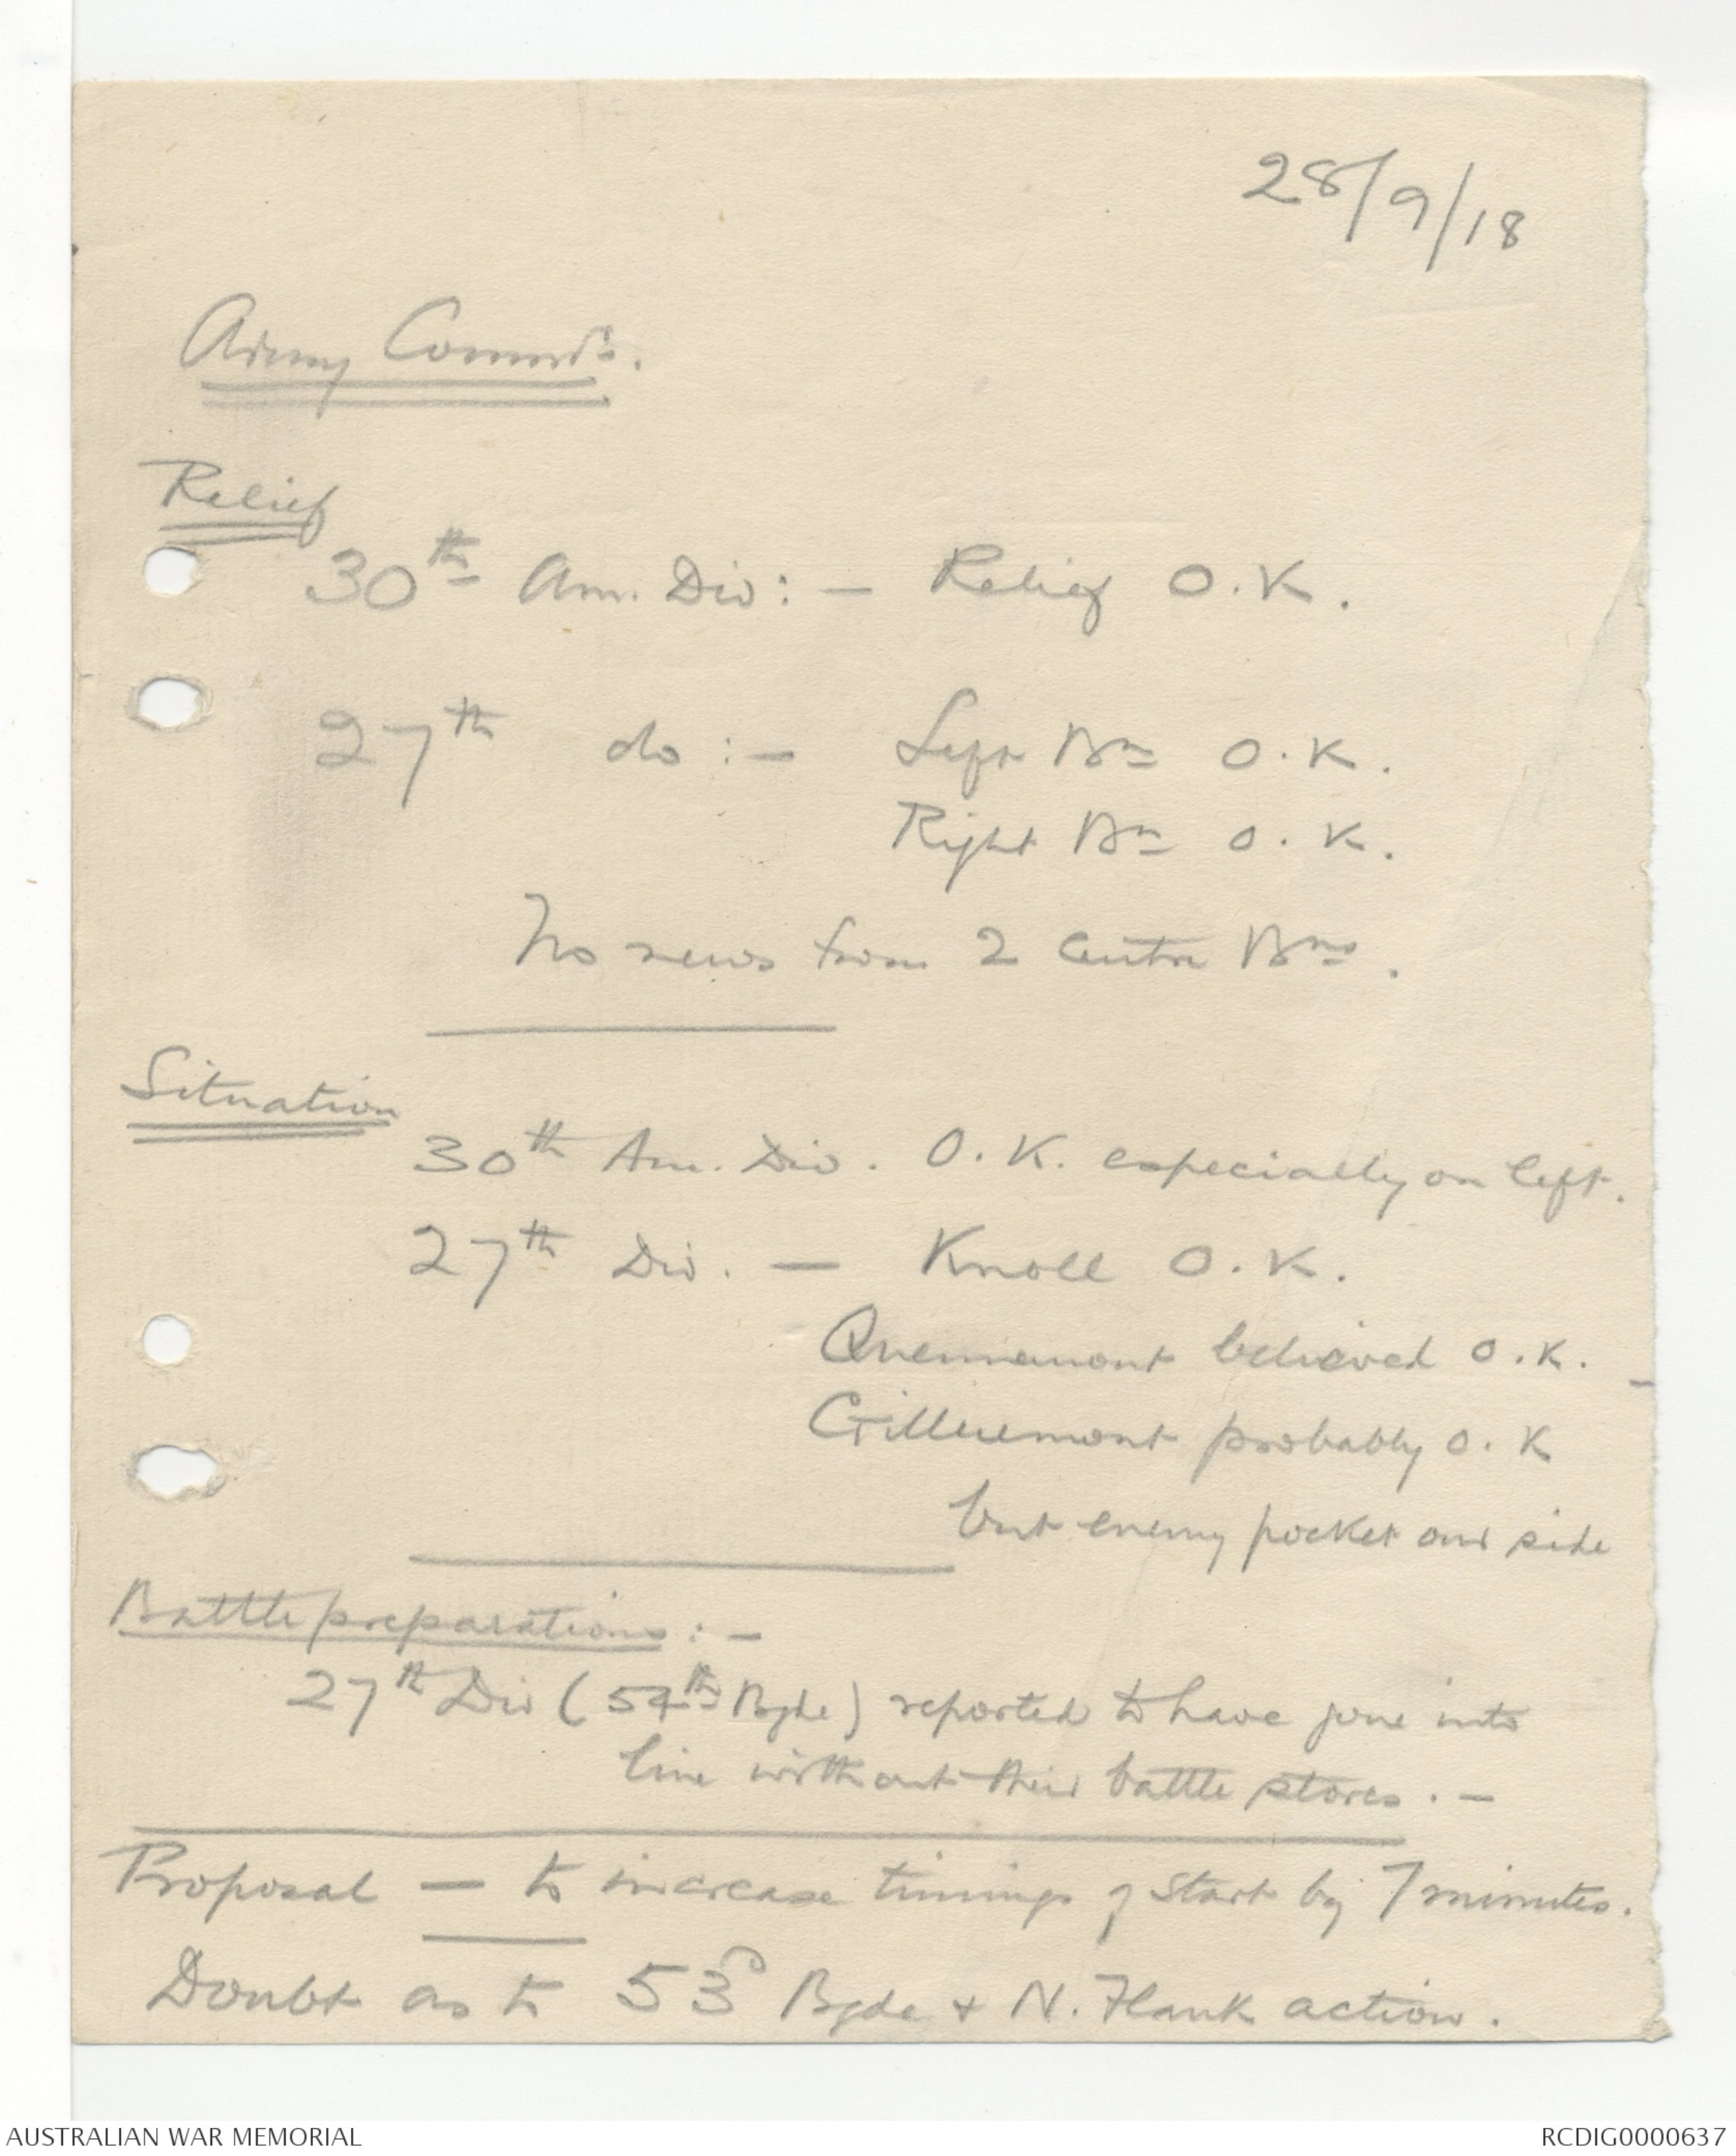 28/9/18
Army Commdr.
Relief
30th Am. Div: — Relief O.K.
27th do :— Left Bn O.K.
Right Bn O.K.
No news from 2 Centre Bns.
Situation
30th Am. Div. O.K. especially on left.
27th Div. — Knoll O.K.
Quennemont believed O.K.
Gillemont probably O.K
but enemy pocket our side
Battle preparations :—
27th Div (54th Bgde) reported to have gone into
line without their battle stores. —
Proposal — to increase timings of start by 7 minutes.
Doubt as to 53d Bgde + N. Flank action.
AUSTRALIAN WAR MEMORIAL
RCDIG0000637